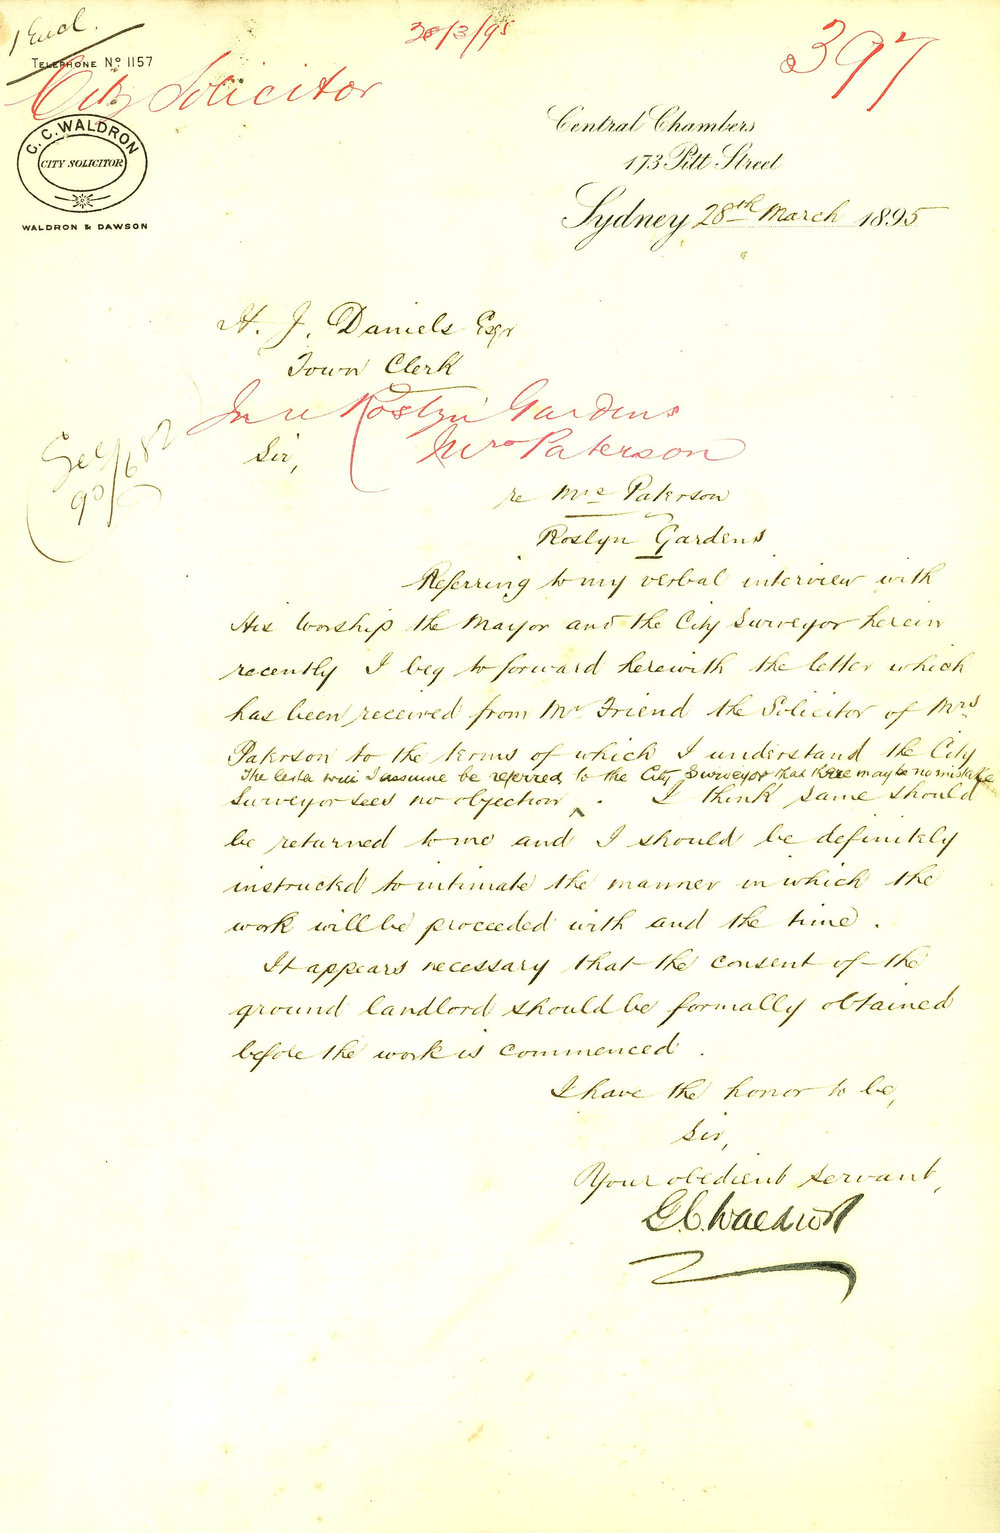 1 Encl.
28/3/95
397
TELEPHONE Nº 1157
City Solicitor
C. C. WALDRON
CITY SOLICITOR
WALDRON & DAWSON
Central Chambers
173 Pitt Street
Sydney 28th March 1895
H. J. Daniels Esqr
Town Clerk
In re Roslyn Gardens
Mrs Paterson
See 95/682
Sir,
re Mrs Paterson
Roslyn Gardens
Referring to my verbal interview with
His Worship the Mayor and the City Surveyor herein
recently I beg to forward herewith the letter which
has been received from Mr Friend the Solicitor of Mrs
Paterson to the terms of which I understand the City
The letter will I assume be referred to the City Surveyor that there may be no mistake
Surveyor sees no objection ^. I think same should
be returned to me and I should be definitely
instructed to intimate the manner in which the
work will be proceeded with and the time.
It appears necessary that the consent of the
ground landlord should be formally obtained
before the work is commenced.
I have the honor to be,
Sir,
Your obedient servant,
C. C. Waldron